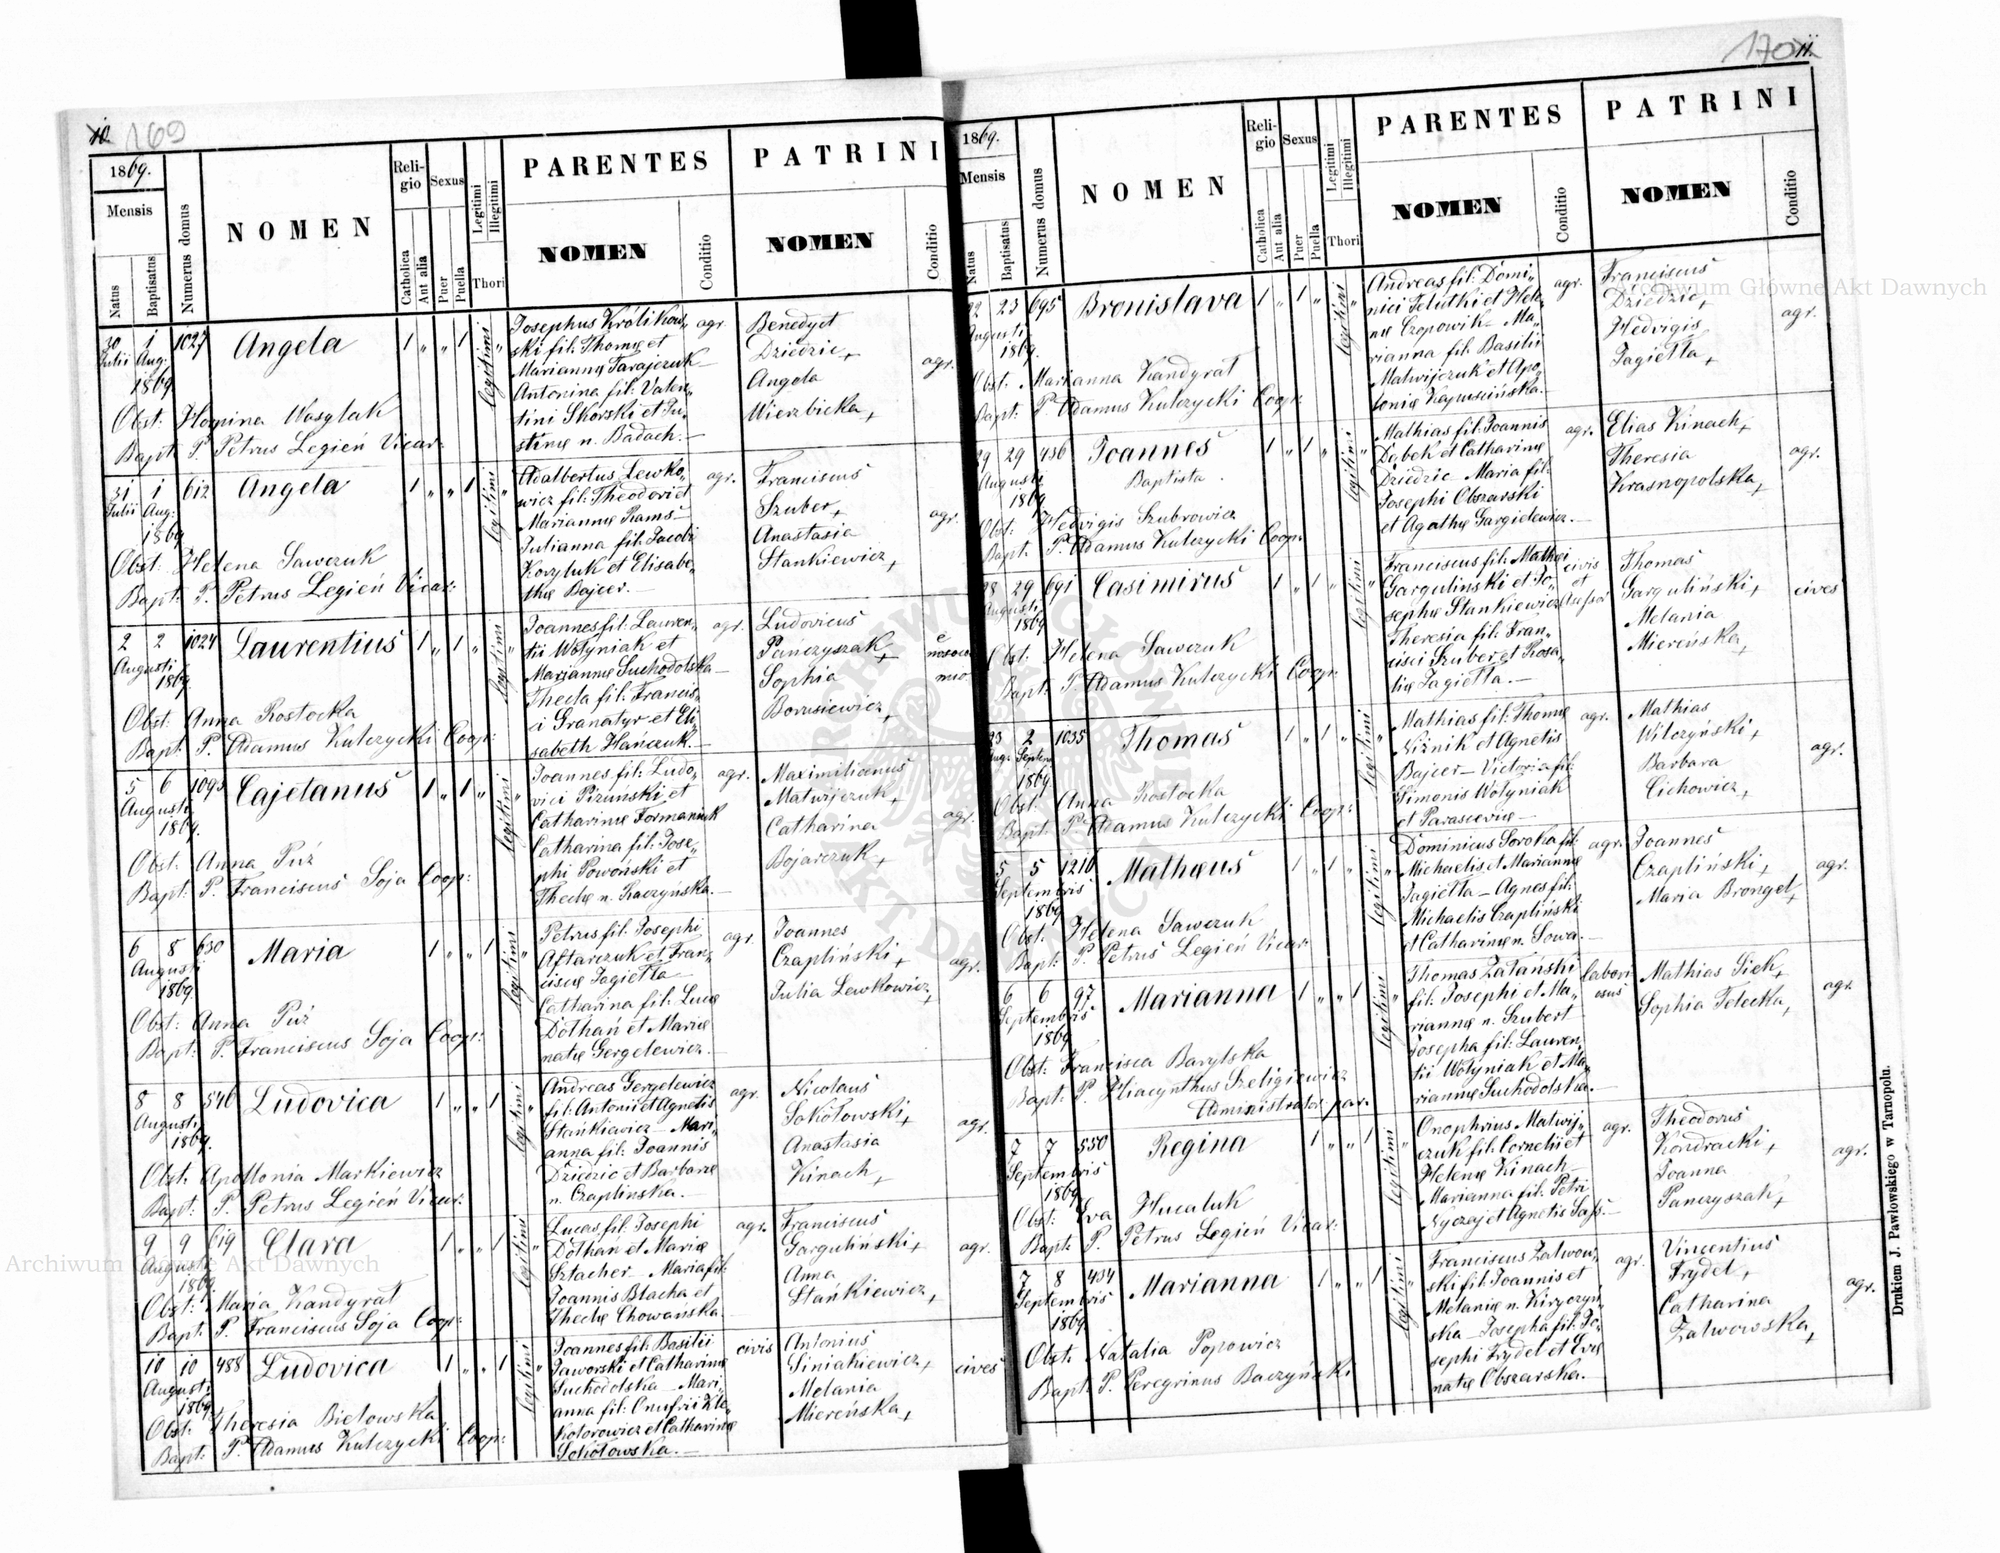 10. 169
1869.
Mensis
Natus
Baptisatus
Numerus domus
NOMEN
Reli-
gio
Catholica
Aut alia
Sexus
Puer
Puella
Legitimi
Illegitimi
Thori
PARENTES
NOMEN
Conditio
PATRINI
NOMEN
Conditio
30 1 1027 Angela 1 " " 1 legitimi "
Julii Aug.
1869
Obst: Hornina Wasylak
Bapt: P. Petrus Legień Vicar:
Josephus Królikow„
ski fil: Thomę et
Mariannę Tarajczuk—
Antonina fil: Valen„
tini Skorski et Ju„
stinę n. Badach.—
agr.
Benedyct
Dziedzic,+
Angela
Wierzbicka,+
agr.
31 1 612 Angela 1 " " 1 legitimi "
Julii Aug:
1869
Obst: Helena Sawczuk
Bapt: P. Petrus Legień Vicar:
Adalbertus Lewko„
wicz fil: Theodori et
Mariannę Rams—
Julianna fil: Jacobi
Kozyluk et Elisabe„
thę Bajcer.—
agr.
Franciscus
Szuber,+
Anastasia
Stankiewicz,+
agr.
2 2 1024 Laurentius 1 " 1 " legitimi "
Augusti
1869.
Obst: Anna Rostocka
Bapt: P. Adamus Kulczycki Coop:
Joannes fil: Lauren„
tii Wotyniak et
Mariannę Suchodolska—
Thecla fil: Francis„
ci Granatyr et Eli„
sabeth Hańczuk.—
agr.
Ludovicus
Panczyszak,+
Sophia
Borusiewicz,+
5 6 1095 Cajetanus 1 " 1 " legitimi "
Augusti
1869.
Obst: Anna Puź
Bapt: P. Franciscus Soja Coop:
Joannes fil: Ludo„
vici Piruński et
Catharinę Formaniuk
Catharina fil: Jose„
phi Powoński et
Theclę n. Raczyńska.—
agr.
Maximilianus
Matwijczuk,+
Catharina
Bojarczuk,+
agr.
6 8 630 Maria 1 " " 1 legitimi "
Augusti
1869.
Obst: Anna Puź
Bapt: P. Franciscus Soja Coop:
Petrus fil: Josephi
Aftarczuk et Fran„
ciscę Jagietta—
Catharina fil: Lucę
Dothań et Marię
natę Gergelewicz.—
agr.
Joannes
Czapliński,+
Julia Lewkowicz,+
agr.
8 8 546 Ludovica 1 " " 1 legitimi "
Augusti
1869.
Obst: Apollonia Markiewicz
Bapt: P. Petrus Legień Vicar:
Andreas Gergelewicz
fil: Antonii et Agnetis
Stańkiewicz— Mari„
anna fil: Joannis
Dziedzic et Barbarę
n. Czaplinska.—
agr.
Nicolaus
Sokołowski,+
Anastasia
Kinach,+
agr.
9 9 619 Clara 1 " " 1 legitimi "
Augusti
1869.
Obst: Maria Kandyrat
Bapt: P. Franciscus Soja Coop:
Lucas fil: Josephi
Dothan et Marię
Sztacher— Maria fil:
Joannis Blacha et
Theclę Chowańska.—
agr.
Franciscus
Garguliński,+
Anna
Stańkiewicz,+
agr.
10 10 488 Ludovica 1 " " 1 legitimi "
Augusti
1869.
Obst: Theresia Bielowska
Bapt: P. Adamus Kulczycki Coop:
Joannes fil: Basilii
Jaworski et Catharinę
Suchodolska— Mari„
anna fil: Onufrii Kle„
kotorowicz et Catharinę
Sokołowska.—
civis
Antonius
Siniakiewicz,+
Melania
Miereńska,+
cives
170 11.
1869.
Mensis
Natus
Baptisatus
Numerus domus
NOMEN
Reli-
gio
Catholica
Aut alia
Sexus
Puer
Puella
Legitimi
Illegitimi
Thori
PARENTES
NOMEN
Conditio
PATRINI
NOMEN
Conditio
22 23 695 Bronislava 1 " 1 " legitimi "
Augusti
1869.
Obst: Marianna Kandyrat
Bapt: P. Adamus Kulczycki Coop:
Andreas fil: Domi„
nici Feluthi et Hele„
nę Czopowik— Ma„
rianna fil: Basilii
Matwijczuk et Apo„
lonię Kapuscińska.—
agr.
Franciscus
Dziedzic,+
Hedvigis
Jagietta,+
agr.
29 29 436 Joannes 1 " 1 " legitimi "
Baptista.
Augusti
1869
Obst: Hedvigis Szubrowicz
Bapt: P. Adamus Kulczycki Coop:
Mathias fil: Joannis
Dębek et Catharinę
Dziedzic Maria fil:
Josephi Obszarski
et Agathę Gargielewicz.—
agr.
Elias Kinach,+
Theresia
Krasnopolska,+
agr.
28 29 691 Casimirus 1 " 1 " legitimi "
Augusti
1869
Obst: Helena Sawczuk
Bapt: P. Adamus Kulczycki Coop:
Franciscus fil: Mathei
Gargulinski et Jo„
sephę Stankiewicz
Theresia fil: Fran„
cisci Szuber et Rosa„
lię Jagietta.—
civis
et
Assessor
Thomas
Garguliński,+
Melania
Miereńska,+
cives
23 2 1035 Thomas 1 " 1 " legitimi "
Aug: Septem
1869
Obst: Anna Rostocka
Bapt: P. Adamus Kulczycki Coop:
Mathias fil: Thomę
Niżnik et Agnetis
Bajcer— Victoria fil:
Simonis Wotyniak
et Parascevię—
agr.
Mathias
Wilczyński,+
Barbara
Cichowicz,+
agr.
5 5 1216 Mathæus 1 " 1 " legitimi "
Septembris
1869
Obst: Helena Sawczuk
Bapt: P. Petrus Legień Vicar:
Dominicus Soroka fil:
Michaelis et Mariannę
Jagietta— Agnes fil:
Michaelis Czapliński
et Catharinę n. Sowa.—
agr.
Joannes
Czapliński,+
Maria Brongel,+
agr.
6 6 97. Marianna 1 " " 1 legitimi "
Septembris
1869
Obst: Francisca Barylska
Bapt: P. Hiacynthus Szeligiewicz
Administrator par.
Thomas Zatański
fil: Josephi et Ma„
riannę n. Szubert
Josepha fil: Lauren„
tii Wotyniak et Ma„
riannę Suchodolska.—
labori
osus
Mathias Sick,+
Sophia Telecka,+
agr.
7 7 550 Regina 1 " " 1 legitimi "
Septembris
1869
Obst: Eva Hucaluk
Bapt: P. Petrus Legień Vicar:
Onophrius Matwij„
czuk fil: Cornelii et
Helenę Kinach—
Marianna fil: Petri
Nyczaj et Agnetis Sass.—
agr.
Theodorus
Kondracki,+
Joanna
Panczyszak,+
agr.
7 8 434 Marianna 1 " " 1 legitimi "
Septembris
1869
Obst: Natalia Popowicz
Bapt: P. Peregrinus Baczyński
Franciscus Zalwow„
ski fil: Joannis et
Melanię n. Kiryczyń„
ska— Josepha fil: Jo„
sephi Frydel et Evę
natę Obszarska.—
agr.
Vincentius
Frydel,+
Catharina
Zalwowska,+
agr.
Drukiem J. Pawłowskiego w Tarnopolu.
Archiwum Główne Akt Dawnych
Archiwum Główne Akt Dawnych
ARCHIWUM GŁÓWNE AKT DAWNYCH